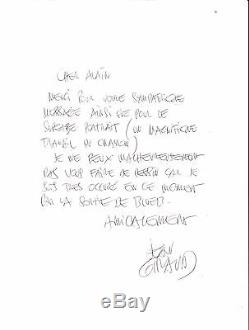 CHER ALAIN
MERCI POUR VOTRE SYMPATHIQUE
MESSAGE AINSI QUE POUR LE
SUPERBE PORTRAIT (UN MAGNIFIQUE
TRAVEL UN CRAYON)
JE NE PEUX MALHEUREUSEMENT
PAS VOUS FAIRE DE DESSIN CAR JE
SUIS TRES OCCUPÉ EN CE MOMENT
PAR LA SORTIE DE BLUEB.
AMICALEMENT
JEAN
GIRAUD